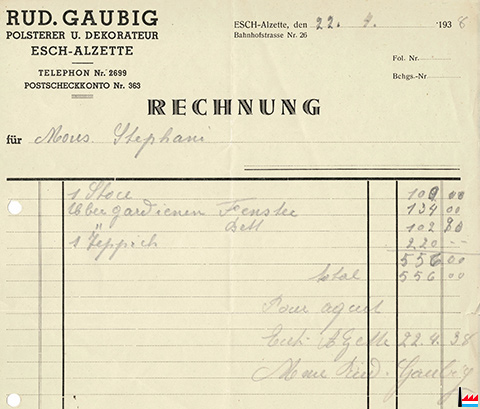 RUD. GAUBIG
POLSTERER U. DEKORATEUR
ESCH-ALZETTE
TELEPHON Nr. 2699
POSTSCHECKKONTO Nr. 363
ESCH-Alzette, den 22. 4. 1938
Bahnhofstrasse Nr. 26
Fol. Nr.
Bchgs.-Nr
RECHNUNG
für Mons. Stephani
1 Store 100 00
Übergardienen Fenster 134 00
" Bett 102
1 Teppich 220 --
556 00
total 556 00
Pour aquit
22.4.38
Rud. Gaubig